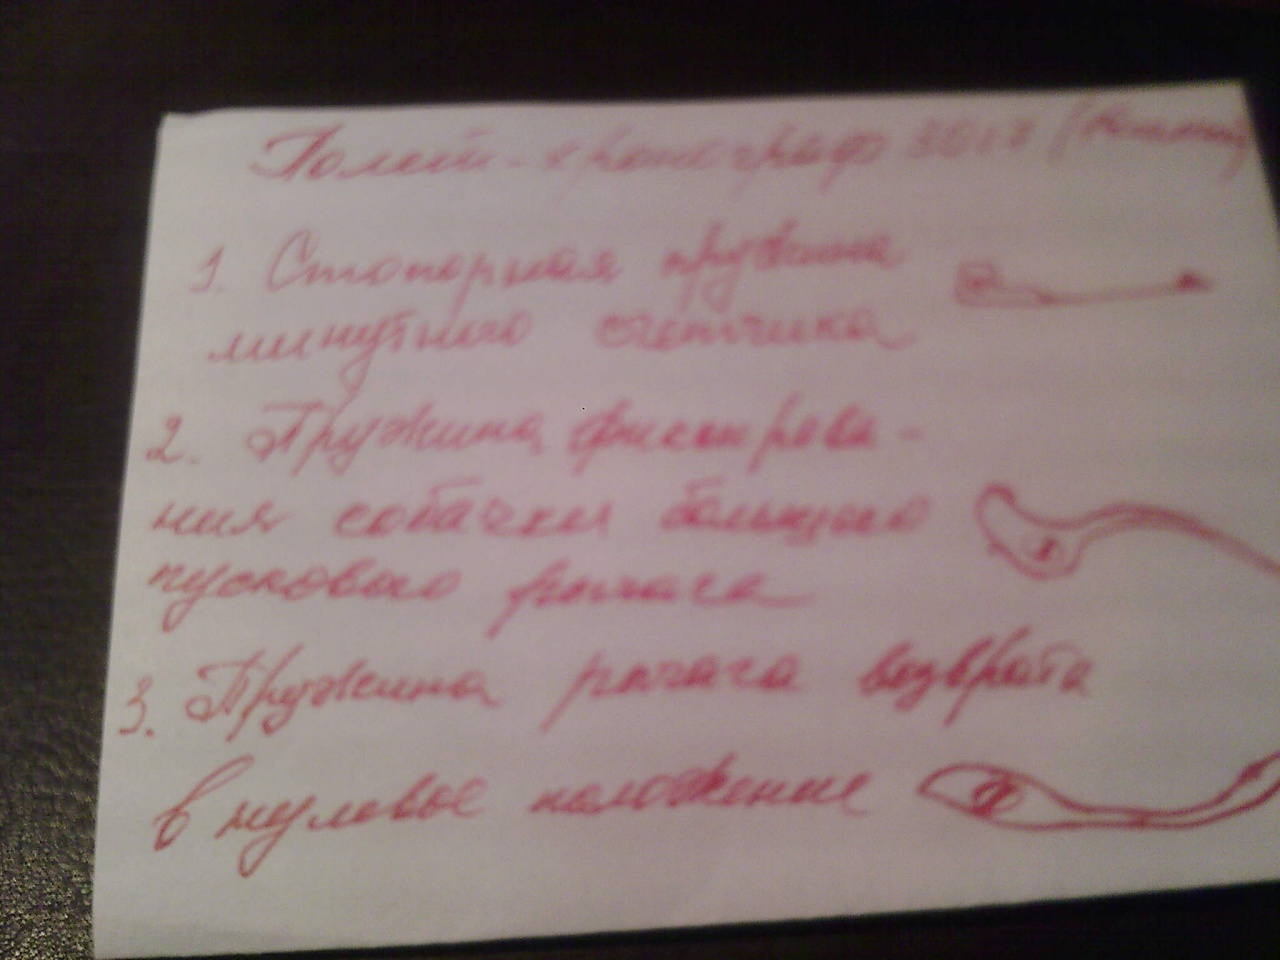 Полет-хронограф 3017
1. Стопорная пружина
минутного счетчика
2. Пружина фиксирова-
ния собачки большого
пускового рычага
3. Пружина рычага возврата
в нулевое положение